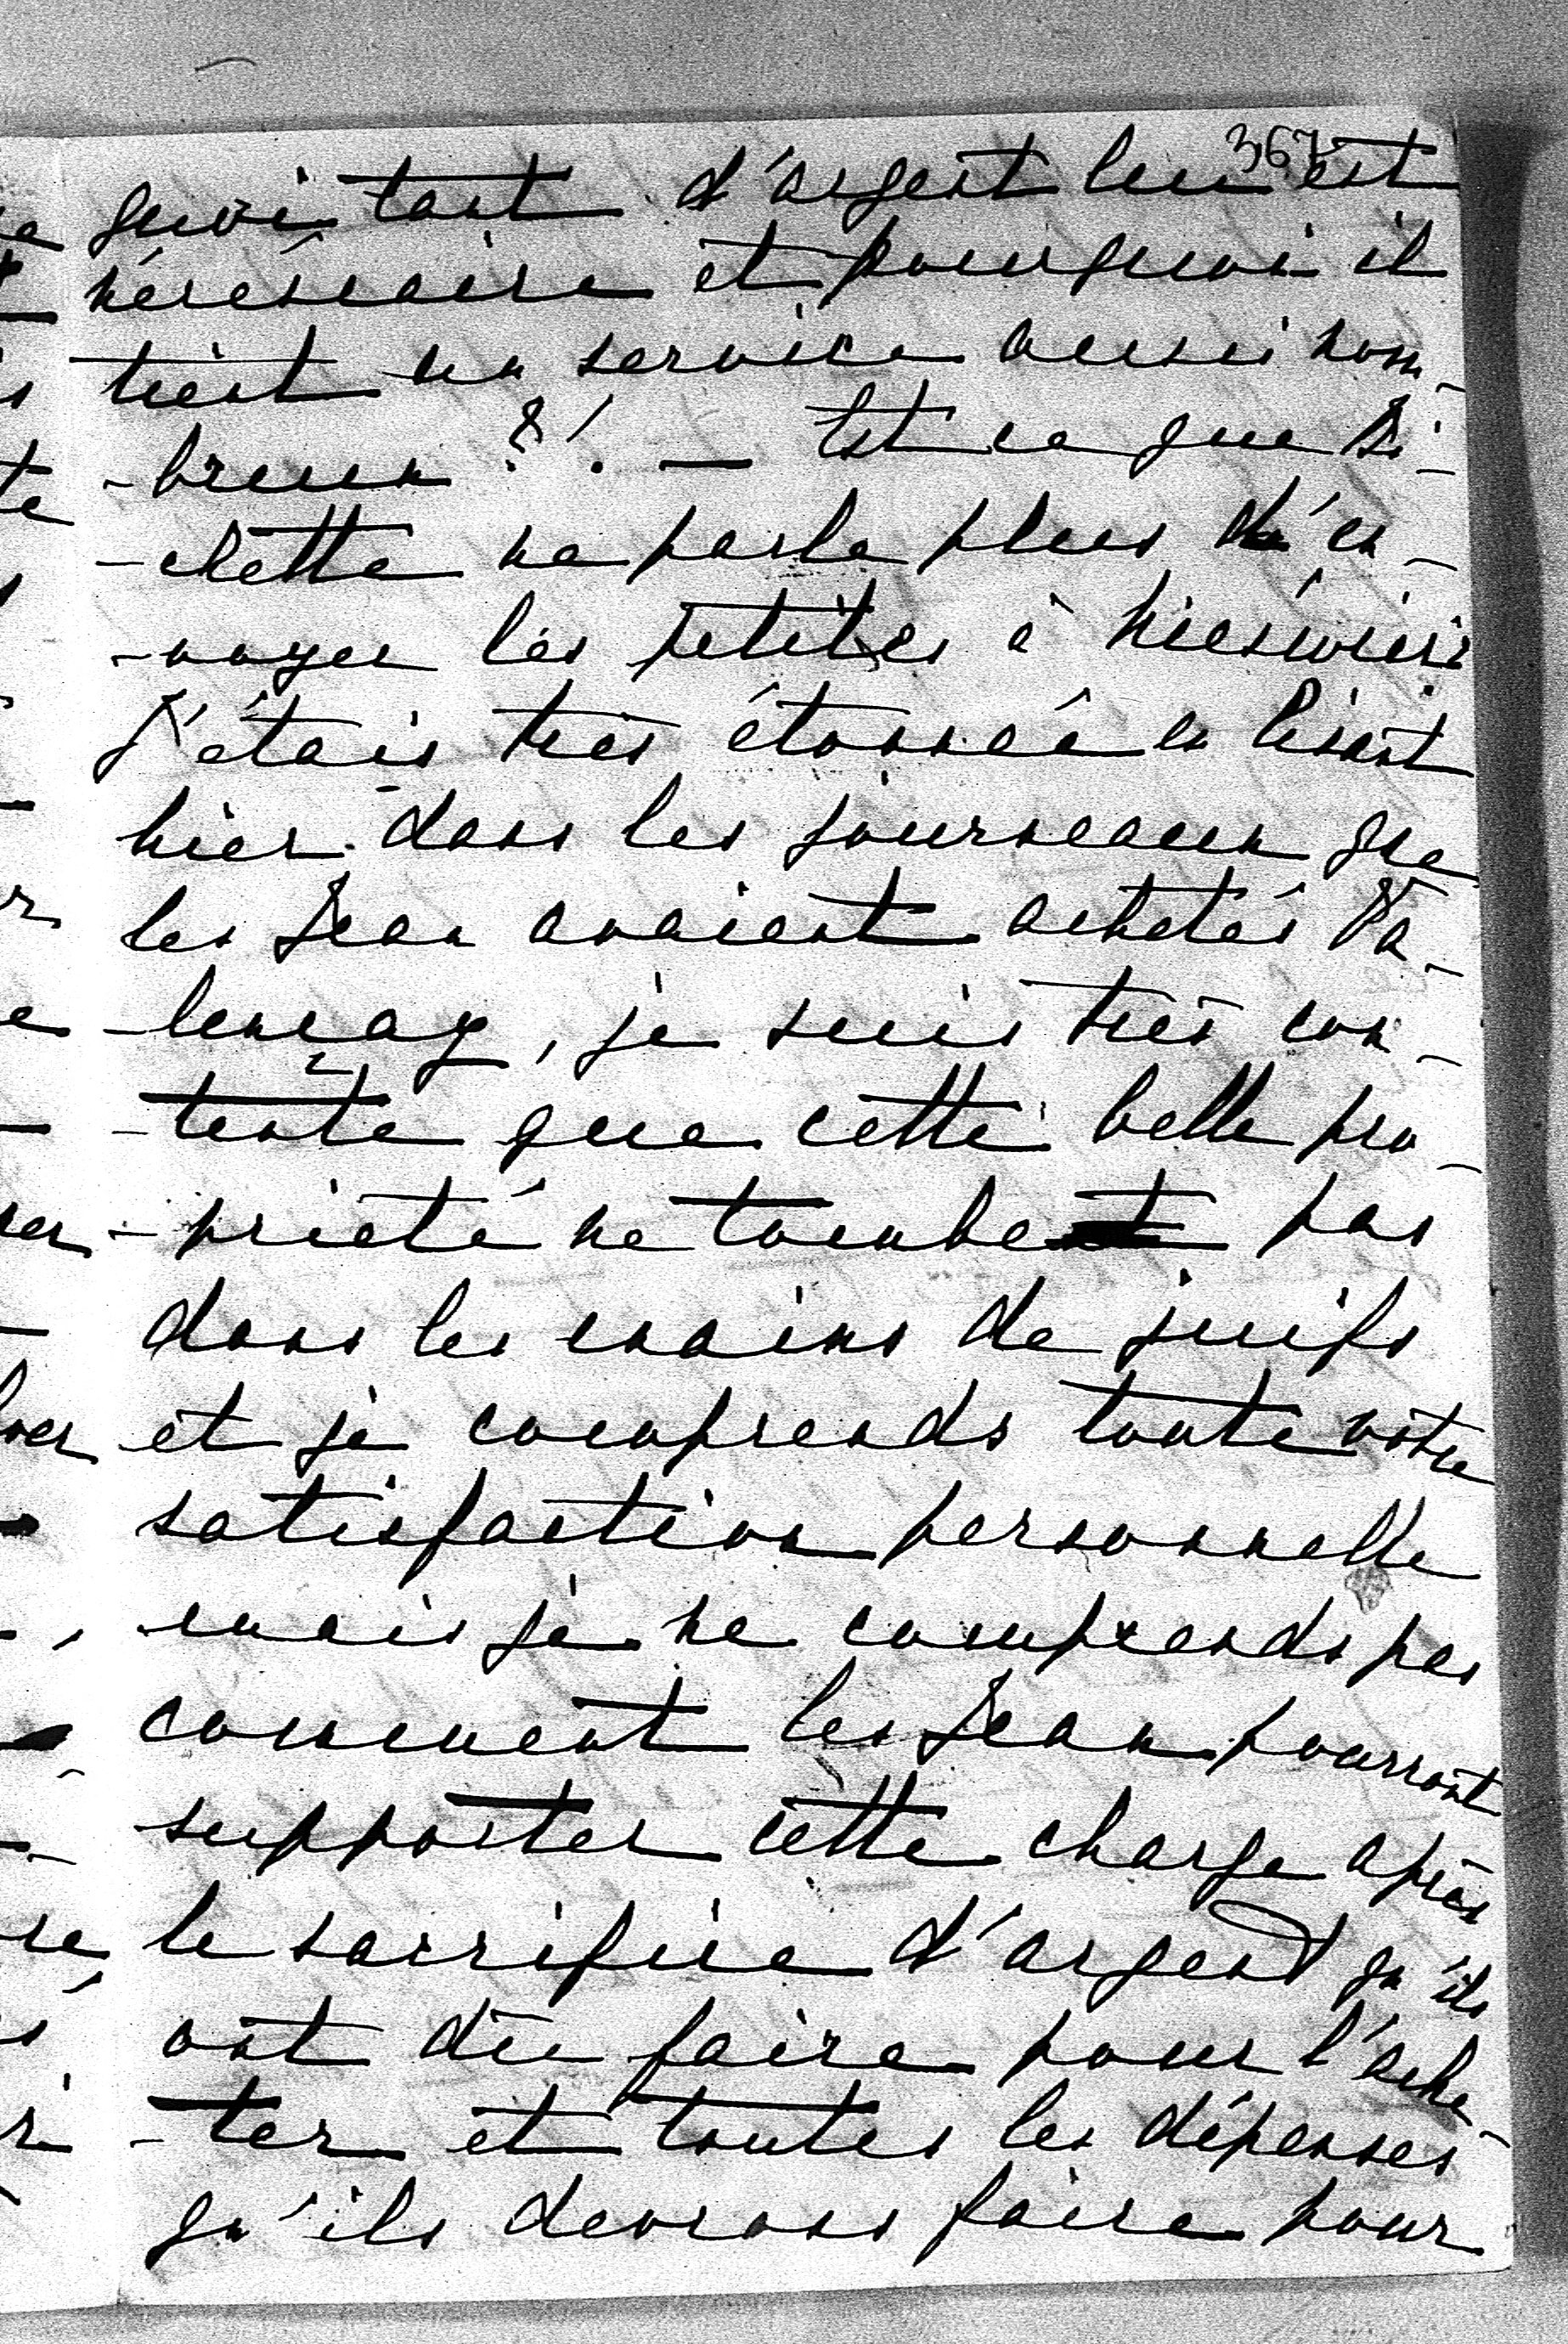 367
quoi tant d'argent lui est
nécéssaire et pourquoi il
tient un service aussi nom-
-breux ?! — Est ce que Bi-
-chette ne parle plus d'en-
-voyer les petites à
J'étais très étonnée en lisant
hier dans les journeaux que
les Jean avaient achetés Va-
-lençay, je suis très con-
-tente que cette belle pro-
-prieté ne tombe pas
dans les mains de juifs
et je comprends toute votre
satisfaction personnelle
mais je ne comprends pas
comment les Jean pourront
supporter cette charge après
le sacrifice d'argent qu'ils
ont dû faire pour l'ache-
-ter et toutes les dépenses
qu'ils devrons faire pour